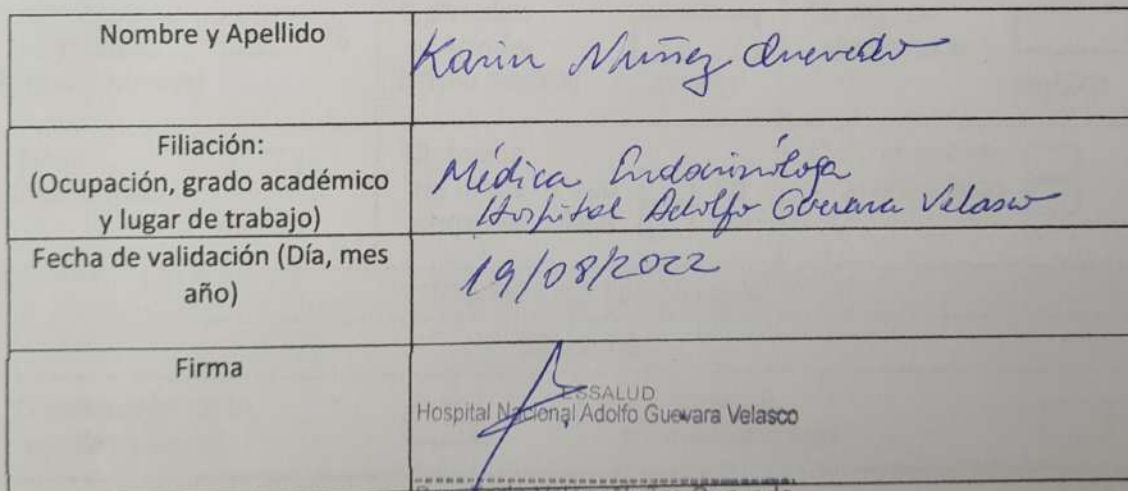 Nombre y Apellido
Karin Nuñez Quevedo
Filiación:
(Ocupación, grado académico
y lugar de trabajo)
Médica Endocrinóloga
Hospital Adolfo Guevara Velasco
Fecha de validación (Día, mes
año)
19/08/2022
Firma
ESSALUD
Hospital Nacional Adolfo Guevara Velasco